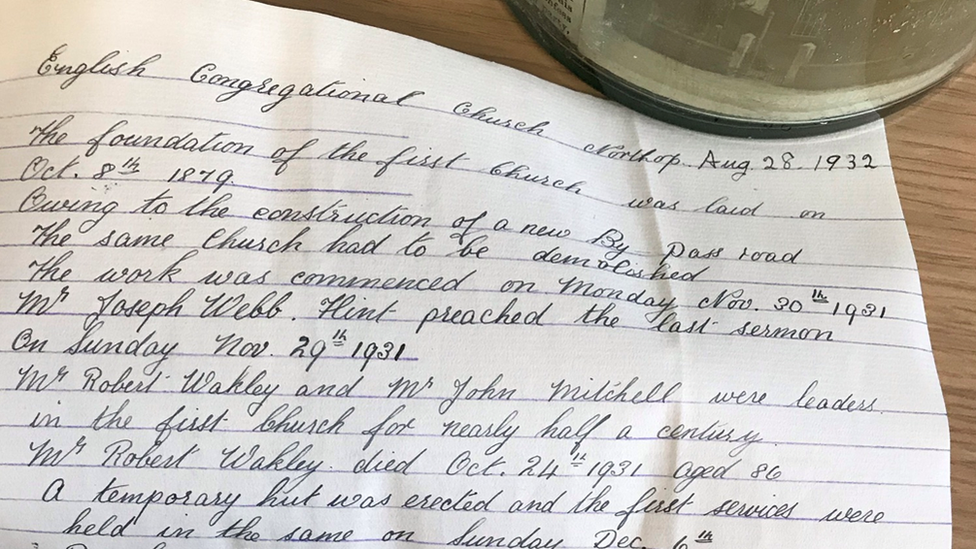 English Congregational Church
Northop Aug. 28. 1932
The foundation of the first Church was laid on
Oct. 8th 1879
Owing to the construction of a new By pass road
The same Church had to be demolished
The work was commenced on Monday Nov. 30th 1931
Mr Joseph Webb. Flint preached the last sermon
On Sunday Nov. 29th 1931
Mr Robert Wakley and Mr John Mitchell were leaders
in the first Church for nearly half a century.
Mr Robert Wakley died Oct. 24th 1931 aged 86
A temporary hut was erected and the first services were
held in the same on Sunday Dec. 6th